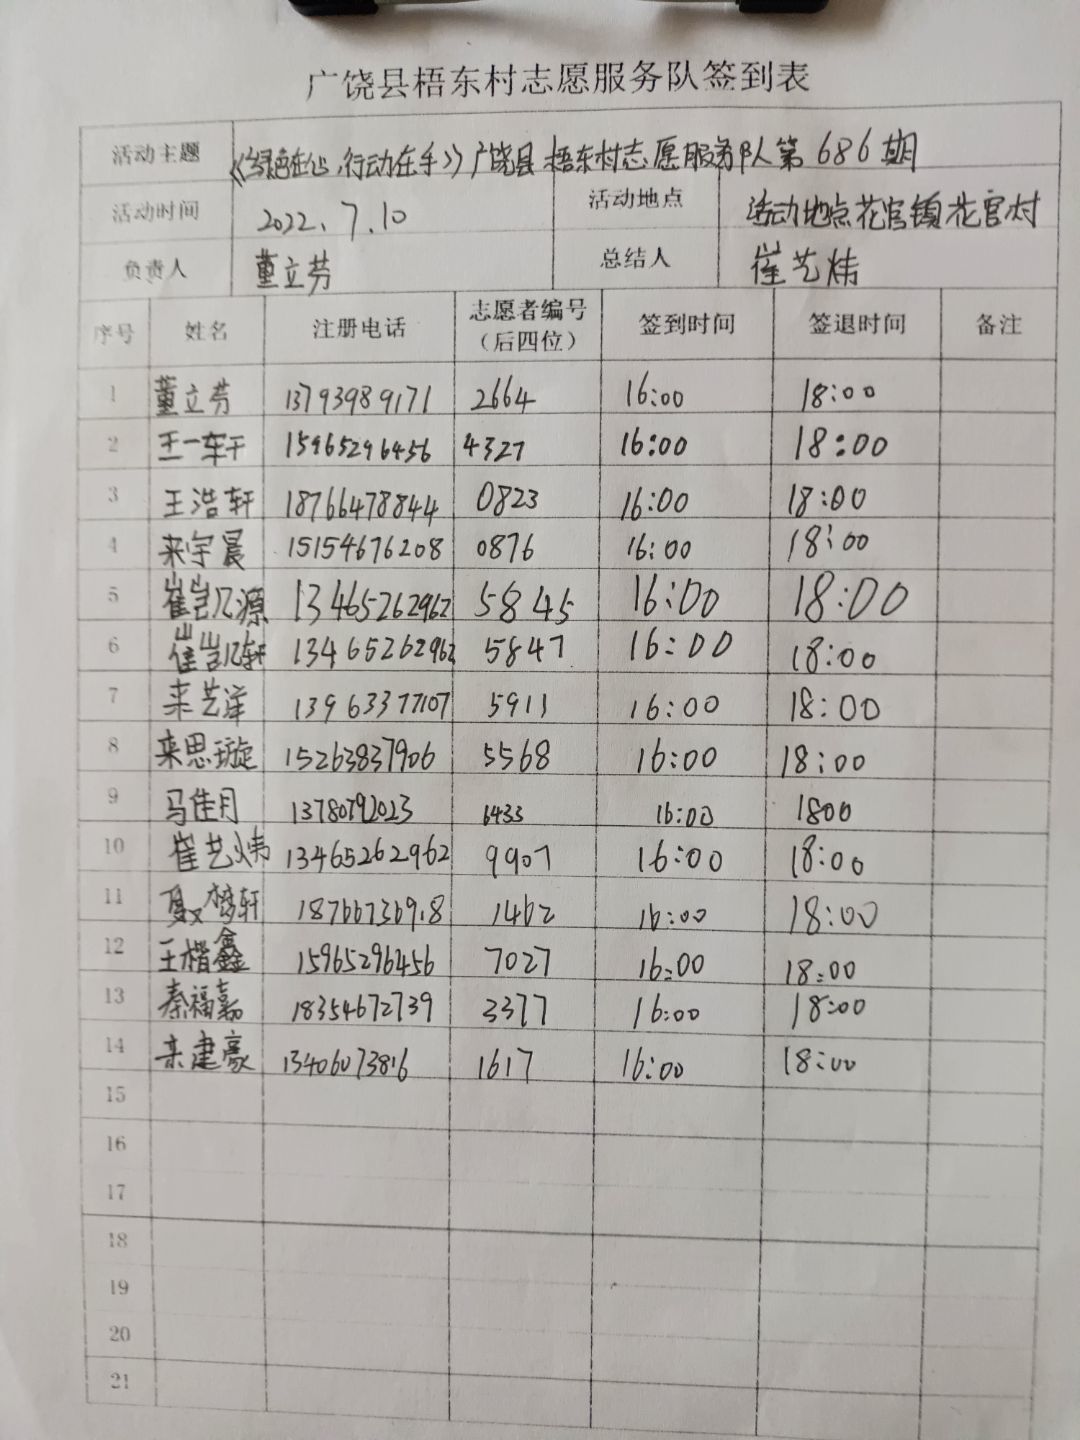 广饶县梧东村志愿服务队签到表
活动主题 《绿色在心,行动在手》广饶县梧东村志愿服务队第686期
活动时间 2022、7.10 活动地点 活动地点花官镇花官村
负责人 董立芬 总结人 崔艺炜
序号 姓名 注册电话 志愿者编号（后四位） 签到时间 签退时间 备注
1 董立芬 13793989171 2664 16:00 18:00
2 王一轩 15965296456 4327 16:00 18:00
3 王浩轩 18766478844 0823 16:00 18:00
4 来宇晨 15154676208 0876 16:00 18:00
5 崔凯源 13465262962 5845 16:00 18:00
6 崔凯轩 13465262962 5847 16:00 18:00
7 来艺洋 13963377107 5911 16:00 18:00
8 来思璇 15263837906 5568 16:00 18:00
9 马佳月 13780792023 6433 16:00 1800
10 崔艺炜 13465262962 9907 16:00 18:00
11 聂梦轩 18766736918 1462 16:00 18:00
12 王楷鑫 15965296456 7027 16:00 18:00
13 秦福嘉 18354672739 3377 16:00 18:00
14 来建豪 13406073816 1617 16:00 18:00
15
16
17
18
19
20
21